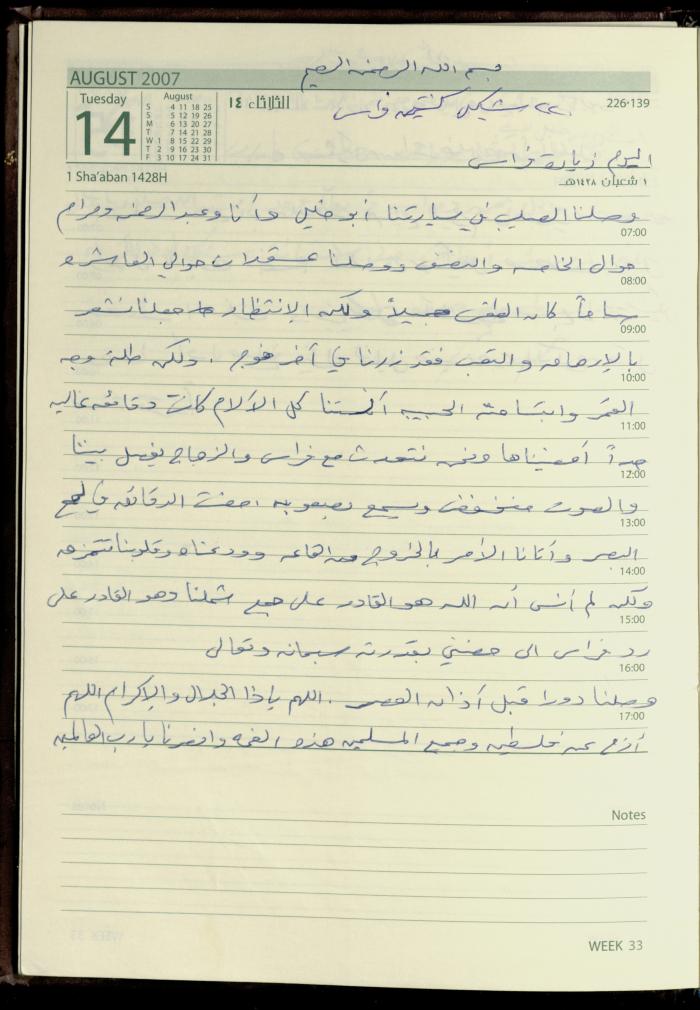 بسم الله الرحمن الرحيم
AUGUST 2007
Tuesday
14
August
الثلاثاء ١٤
226-139
S 4 11 18 25
S 5 12 19 26
M 6 13 20 27
T 7 14 21 28
W 1 8 15 22 29
T 2 9 16 23 30
F 3 10 17 24 31
٢٢٠ شيكل كنتين فراس
اليوم زيارة فراس
1 Sha'aban 1428H
١ شعبان ١٤٢٨هـ
وصلنا الصليب في سيارتنا أبو خليل وأنا وعبد الرحمن ومرام
07:00
حوالي الخامسة والنصف ووصلنا عسقلان حوالي العاشرة
08:00
صباحاً كان الطقس جميلاً ولكن الإنتظار جعلنا نشعر
09:00
بالإرهاق والتعب فقد زرنا في آخر فوج . ولكن طلة وجه
10:00
القمر وابتسامة الحبيب أنستنا كل الآلام كانت دقائق غالية
11:00
جداً أمضيناها ونحن نتحدث مع فراس والزجاج يفصل بيننا
12:00
والصوت منخفض ويسمع بصعوبة مضت الدقائق في لمح
13:00
البصر وأتانا الأمر بالخروج وودعناه وقلوبنا تتمزق
14:00
ولكن لم أنسى أن الله هو القادر على جمع شملنا وهو القادر على
15:00
رد فراس الى حضني بقدرته سبحانه وتعالى
16:00
وصلنا دورا قبل أذان العصر . اللهم ياذا الجلال والإكرام اللهم
17:00
أزح عن فلسطين وجميع المسلمين هذه الغمة وانصرنا يا رب العالمين
Notes
WEEK 33